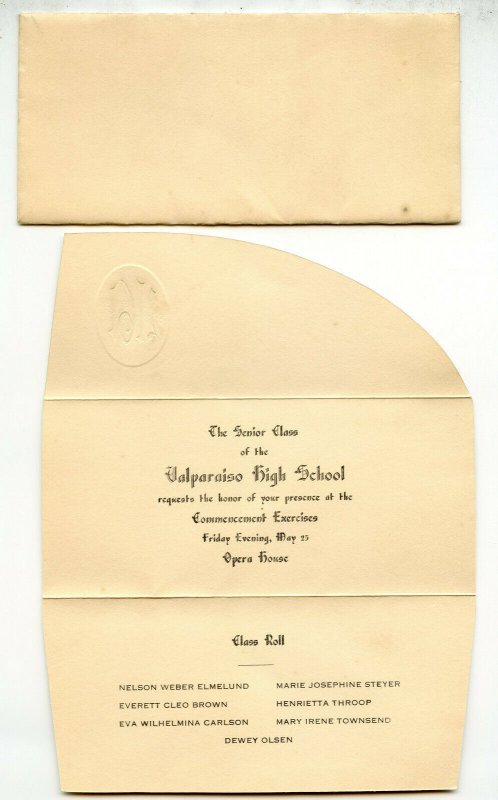 The Senior Class
of the
Valparaiso High School
requests the honor of your presence at the
Commencement Exercises
Friday Evening, May 25
Opera House
Class Roll
NELSON WEBER ELMELUND MARIE JOSEPHINE STEYER
EVERETT CLEO BROWN HENRIETTA THROOP
EVA WILHELMINA CARLSON MARY IRENE TOWNSEND
DEWEY OLSEN